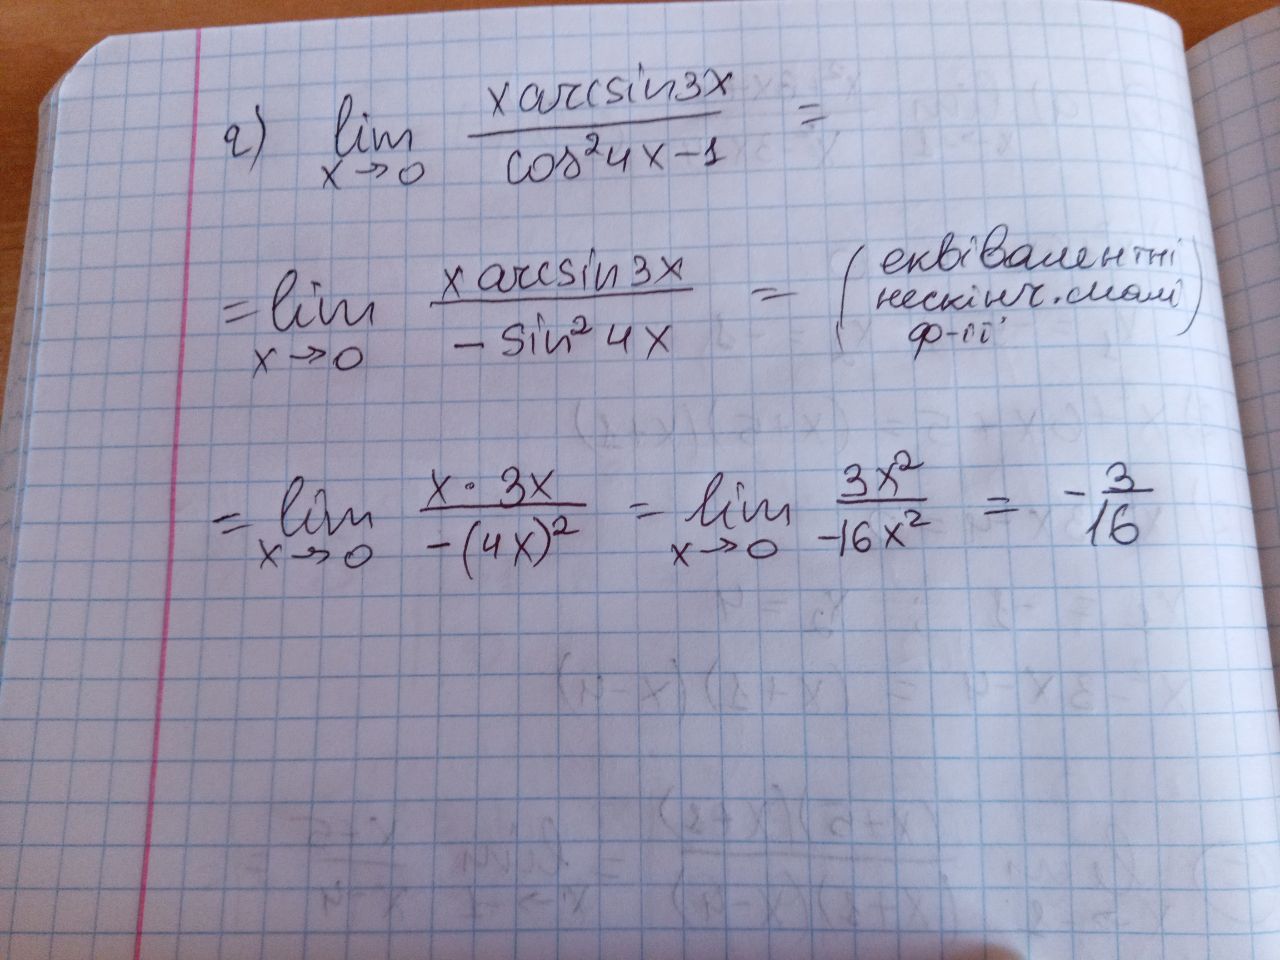 г) lim x→0 x arcsin3x / cos²4x-1 =
= lim x→0 x arcsin3x / -sin²4x = (еквівалентні нескінч. малі ф-ії)
= lim x→0 x·3x / -(4x)² = lim x→0 3x² / -16x² = -3/16